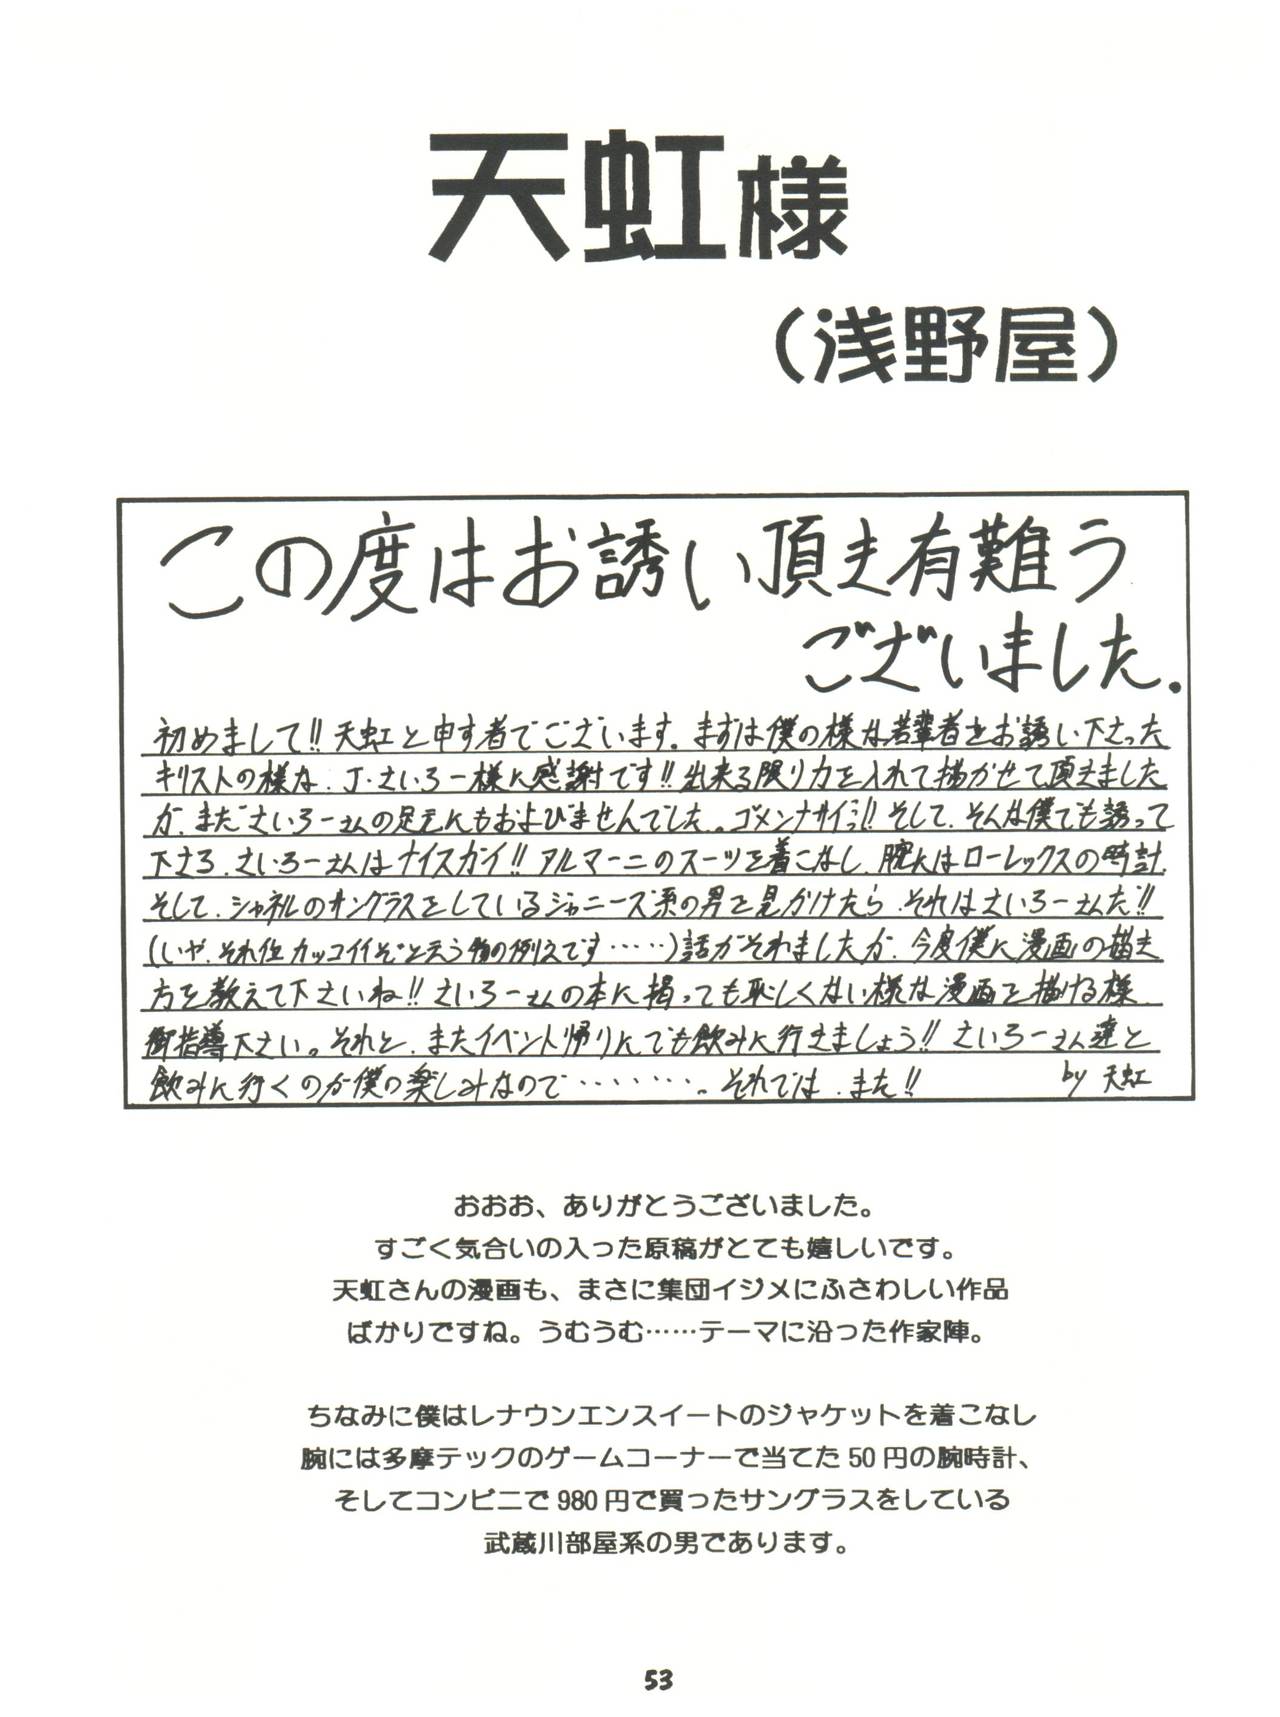 天虹様
（浅野屋）
この度はお誘い頂き有難う
ございました.
初めまして!!天虹と申す者でございます。まずは僕の様な若輩者をお誘い下さった
キリストの様な、J・さいろー様に感謝です!!出来る限り力を入れて描かせて頂きました
が、まださいろーさんの足元にもおよびませんでした。ゴメンナサイっ!!そして、そんな僕でも誘って
下さる、さいろーさんはナイスガイ!!アルマーニのスーツを着こなし、腕にはローレックスの時計、
そして、シャネルのサングラスをしているジャニーズ系の男を見かけたら、それはさいろーさんだ!!
(いや、それ位カッコイイぞと云う物の例えです……)話がそれましたが、今度僕に漫画の描き
方を教えて下さいね!!さいろーさんの本に損っても恥しくない様な漫画を描ける様
御指導下さい。それと、またイベント帰りにでも飲みに行きましょう!!さいろーさん達と
飲みに行くのが僕の楽しみなので………。それでは、また!! by 天虹
おおお、ありがとうございました。
すごく気合いの入った原稿がとても嬉しいです。
天虹さんの漫画も、まさに集団イジメにふさわしい作品
ばかりですね。うむうむ……テーマに沿った作家陣。
ちなみに僕はレナウンエンスイートのジャケットを着こなし
腕には多摩テックのゲームコーナーで当てた50円の腕時計、
そしてコンビニで980円で買ったサングラスをしている
武蔵川部屋系の男であります。
53